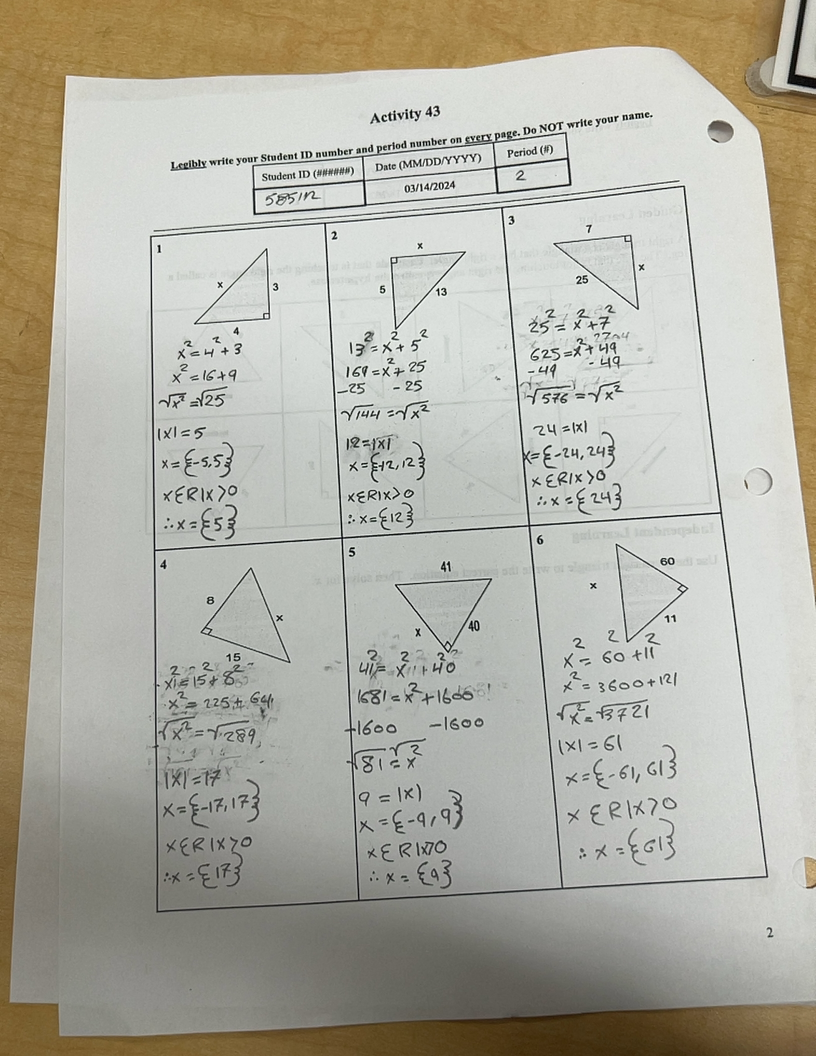 Activity 43
Legibly write your Student ID number and period number on every page. Do NOT write your name.
Student ID (######) Date (MM/DD/YYYY) Period (#)
03/14/2024 2
1
x 3
4
x² = 4² + 3
x² = 16 + 9
√x² = √25
|x| = 5
x = {-5,5}
x ∈ R | x > 0
∴ x = {5}
2
x
5 13
13² = x² + 5²
169 = x² + 25
-25 -25
√144 = √x²
12 = |x|
x = {-12, 12}
x ∈ R | x > 0
∴ x = {12}
3
7
25 x
25² = x² + 7²
625 = x² + 49
-49 -49
√576 = √x²
24 = |x|
x = {-24, 24}
x ∈ R | x > 0
∴ x = {24}
4
8 x
15
x² = 15² + 8²
x² = 225 + 64
√x² = √289
|x| = 17
x = {-17, 17}
x ∈ R | x > 0
∴ x = {17}
5
41
x 40
41² = x² + 40²
1681 = x² + 1600
-1600 -1600
√81 = √x²
9 = |x|
x = {-9, 9}
x ∈ R | x > 0
∴ x = {9}
6
60
x
11
x² = 60² + 11²
x² = 3600 + 121
√x² = √3721
|x| = 61
x = {-61, 61}
x ∈ R | x > 0
∴ x = {61}
2